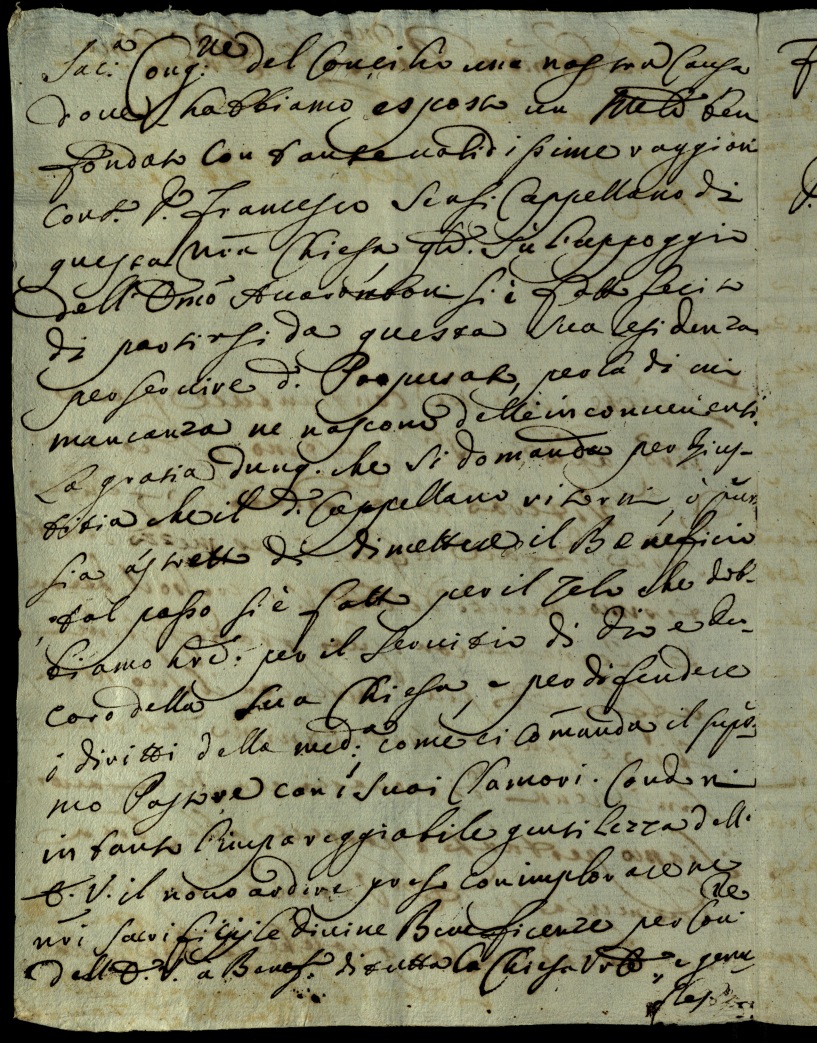 Sac.ª Cong.ne del Concilio una nostra Causa
dove habbiamo esposto un ben
fondato con tante validissime raggioni
cont. P. Francesco Sensi Cappellano di
questa nrã Chiesa qle. Su l'appoggio
dell' Emo si è fatto lecito
di partirsi da questa sua residenza
per servire d.º Porporato, per la di cui
mancanza ne nascono dell'inconvenienti.
La gratia dunq. che si domanda per gius-
titia che il d.º Cappellano ritorni, ò pur
sia astretto di dimettere il Beneficio
tal passo si è fatto per il zelo che dob-
biamo hre: per il servitio di Dio e de-
coro della sua Chiesa, e per difendere
i diritti della med.ª come ci comanda il supre-
mo Pastore con i suoi Clamori. Condoni
in tanto l'impareggiabile gentilezza dell'
E. V. il nr̃o ardire preso con implorare ne
nrĩ sacrificij le divine Beneficenze per Con.ne
dell' E. V. a Benef.º di tutta la Chiesa e genu-